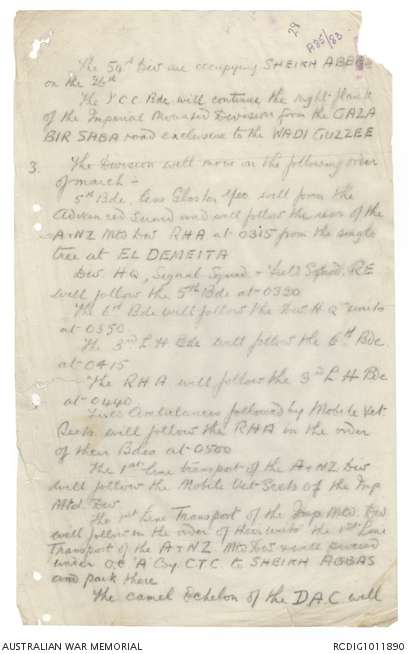 29
A25/83
The 54th Div are occupying SHEIKH ABBAS
on the 26th
The I C C Bde will continue the right flank
of the Imperial Mounted Division from the GAZA
BIR SABA road exclusive to the WADI GUZZEE
3. The Division will move in the following order
of march -
5th Bde, less Gloster Yeo will form the
Advanced Guard and will follow the rear of the
A & NZ Mtd Div RHA at 0315 from the single
tree at EL DEMEITA
Div HQ, Signal Squad & Field Squad. RE
will follow the 5th Bde at 0330
The 6th Bde will follow the Div HQ units
at 0350
The 3rd L H Bde will follow the 6th Bde
at 0415
The RHA will follow the 3rd L H Bde
at 0440
Ambulances followed by Mobile Vet
Sects will follow the RHA in the order
of their Bdes at 0500
The 1st Line transport of the A & NZ Div
will follow the Mobile Vet Sects of the Imp
Mtd Div
The 1st Line Transport of the Imp Mtd. Div
will follow in the order of their units the 1st Line
Transport of the A & NZ Mtd Div & will proceed
under O.C "A" Coy CTC to SHEIKH ABBAS
and park there
The camel Echelon of the DAC will
AUSTRALIAN WAR MEMORIAL
RCDIG1011890